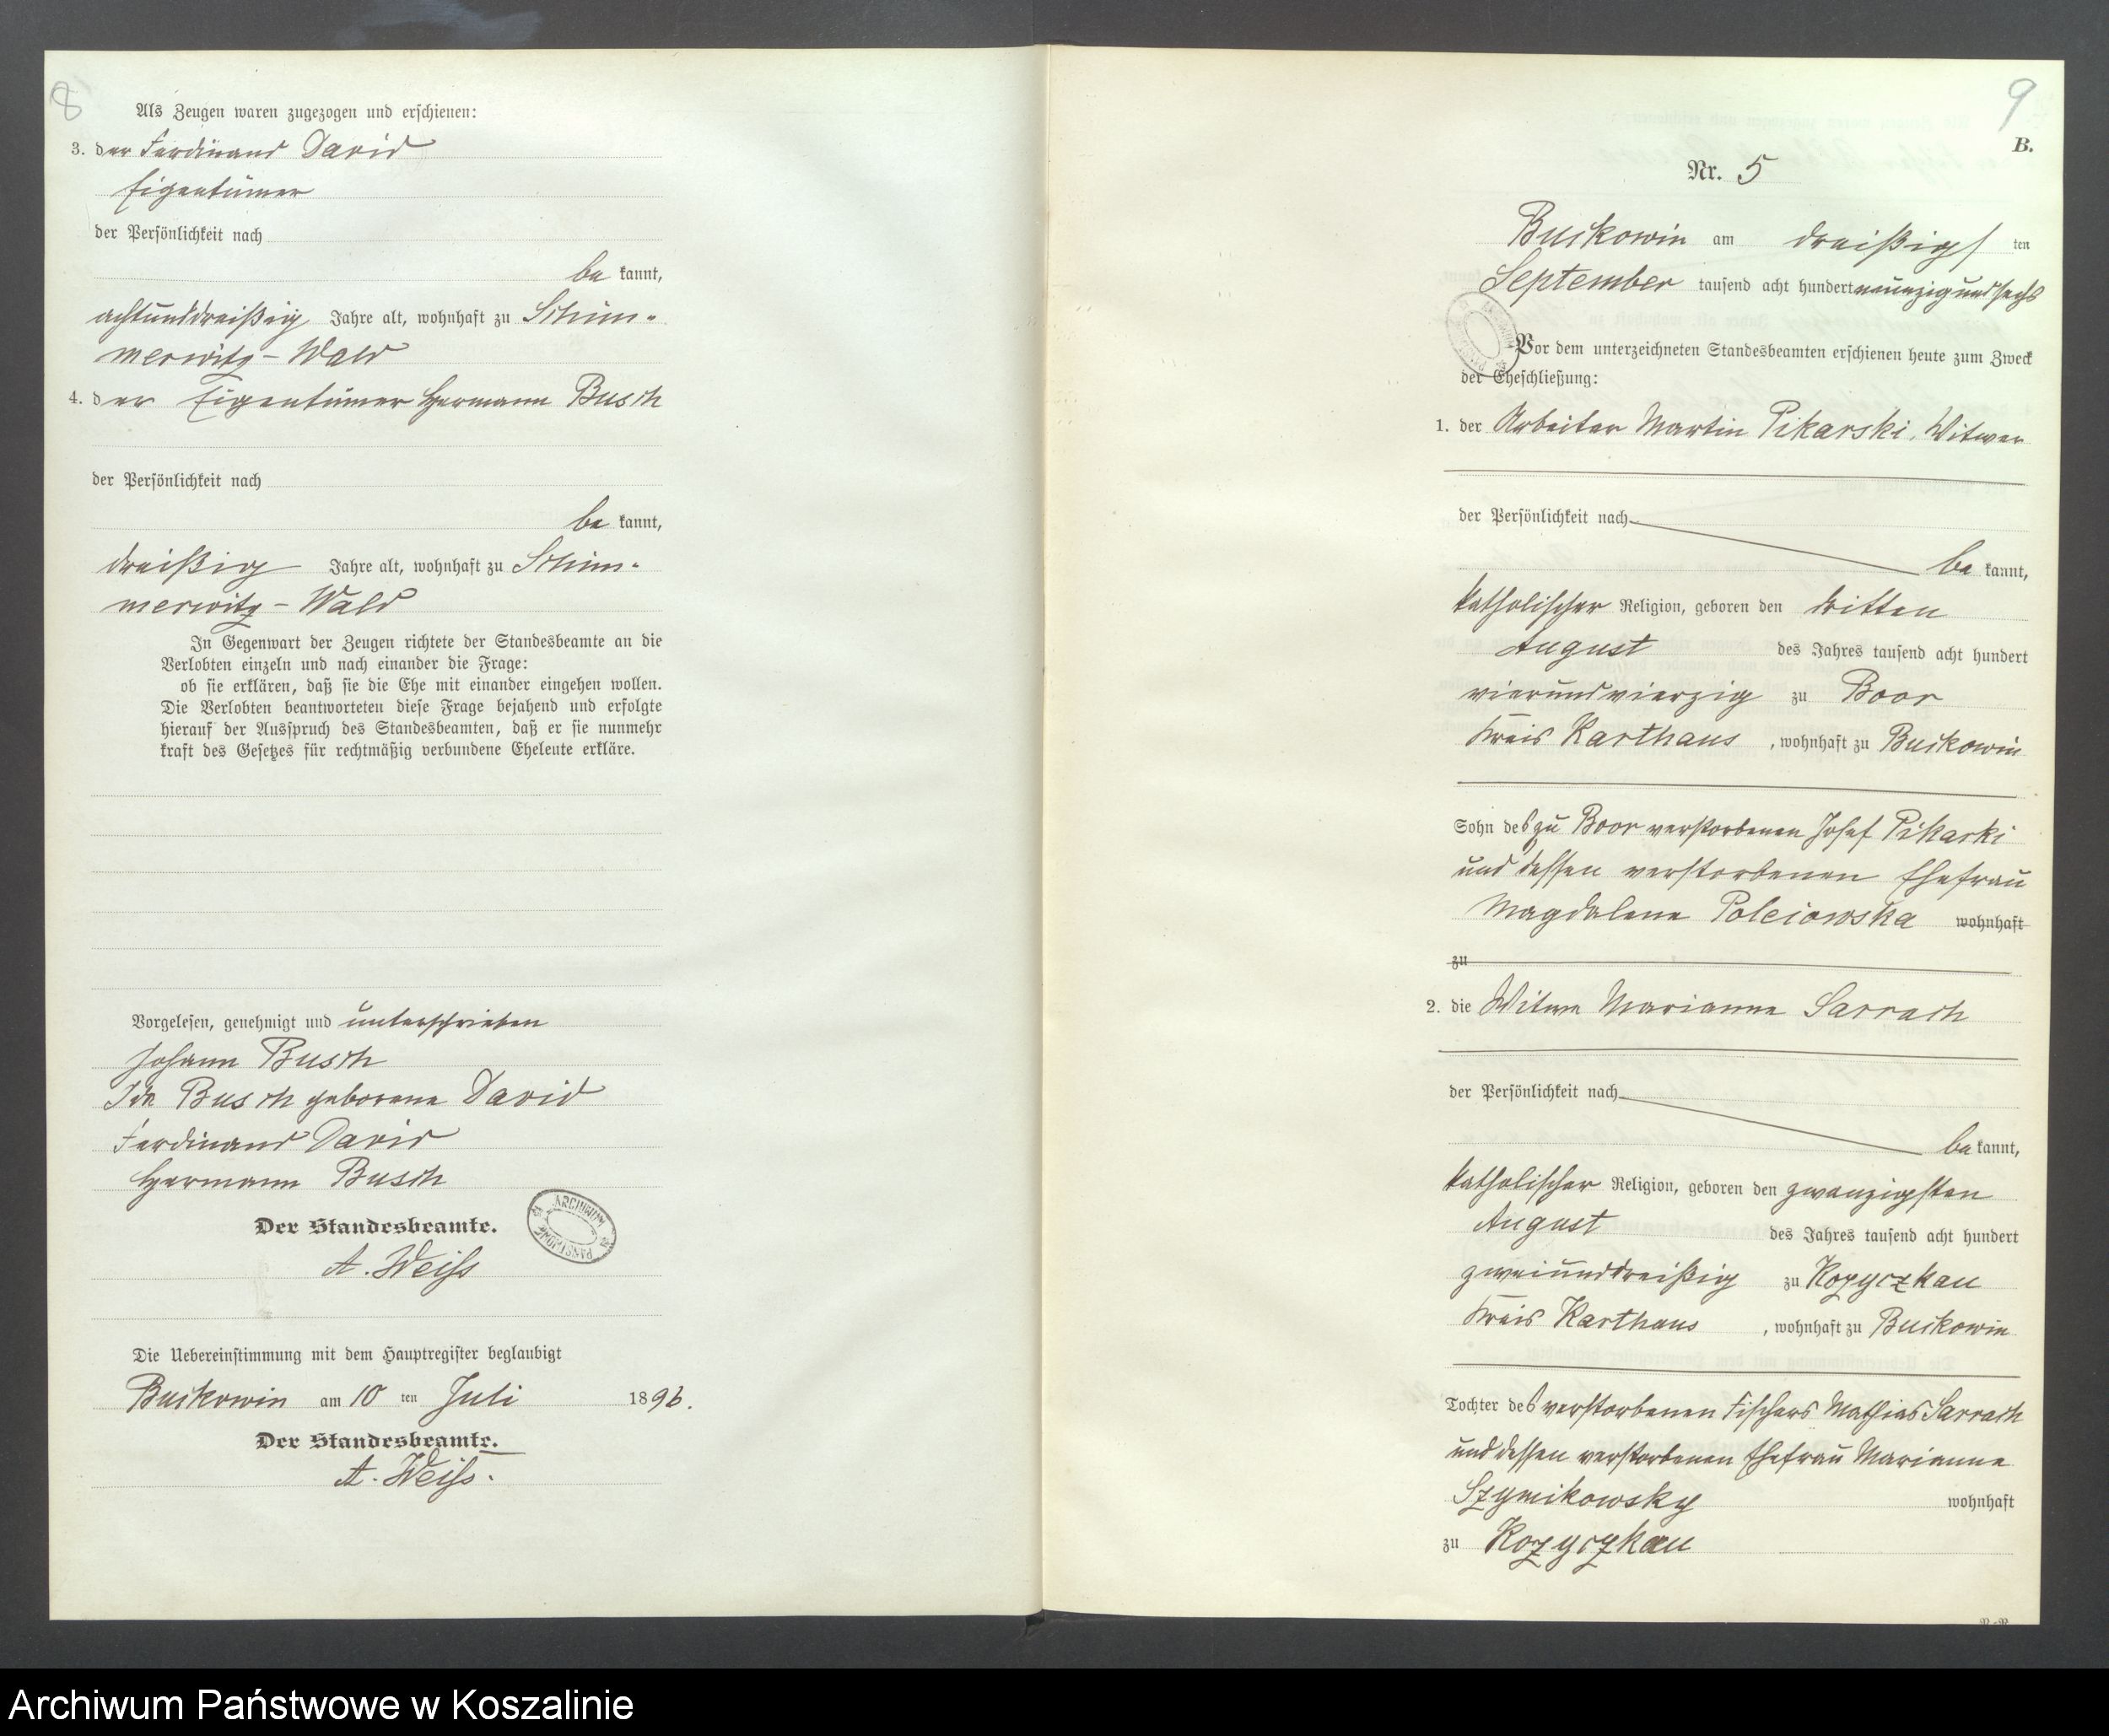 8
Als Zeugen waren zugezogen und erschienen:
3. der Ferdinand David
Eigentümer
der Persönlichkeit nach
be kannt,
achtunddreißig Jahre alt, wohnhaft zu Schim-
merwitz-Wald
4. der Eigentümer Hermann Busch
der Persönlichkeit nach
be kannt,
dreißig Jahre alt, wohnhaft zu Schim-
merwitz-Wald
In Gegenwart der Zeugen richtete der Standesbeamte an die
Verlobten einzeln und nach einander die Frage:
ob sie erklären, daß sie die Ehe mit einander eingehen wollen.
Die Verlobten beantworteten diese Frage bejahend und erfolgte
hierauf der Ausspruch des Standesbeamten, daß er sie nunmehr
kraft des Gesetzes für rechtmäßig verbundene Eheleute erkläre.
Vorgelesen, genehmigt und unterschrieben
Johann Busch
Ida Busch geborene David
Ferdinand David
Hermann Busch
Der Standesbeamte.
ARCHIWUM PAŃSTWOWE
A. Weiß
Die Uebereinstimmung mit dem Hauptregister beglaubigt
Buckowin am 10 ten Juli 1896.
Der Standesbeamte.
A. Weiß.
9
B.
Nr. 5
Buckowin am dreißigs ten
September tausend acht hundert neunzig und sechs
Vor dem unterzeichneten Standesbeamten erschienen heute zum Zweck
der Eheschließung:
1. der Arbeiter Martin Pikarski, Witwer
der Persönlichkeit nach
be kannt,
katholischer Religion, geboren den dritten
August des Jahres tausend acht hundert
vierundvierzig zu Boor
Kreis Karthaus, wohnhaft zu Buckowin
Sohn des zu Boor verstorbenen Josef Pikarski
und dessen verstorbenen Ehefrau
Magdalena Polciowska wohnhaft
zu
2. die Witwe Marianna Sarrach
der Persönlichkeit nach
be kannt,
katholischer Religion, geboren den zwanzigsten
August des Jahres tausend acht hundert
zweiunddreißig zu Kozyczkau
Kreis Karthaus, wohnhaft zu Buckowin
Tochter des verstorbenen Fischers Mathias Sarrach
und dessen verstorbenen Ehefrau Marianna
Szymikowsky wohnhaft
zu Kozyczkau
Archiwum Państwowe w Koszalinie